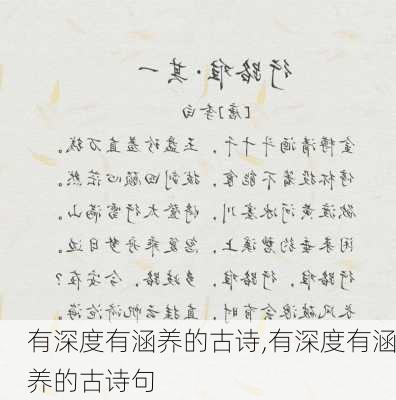 行路难·其一
[唐]李白
金樽清酒斗十千，玉盘珍羞直万钱。
停杯投箸不能食，拔剑四顾心茫然。
欲渡黄河冰塞川，将登太行雪满山。
闲来垂钓碧溪上，忽复乘舟梦日边。
行路难，行路难，多歧路，今安在？
长风破浪会有时，直挂云帆济沧海。
有深度有涵养的古诗,有深度有涵
养的古诗句